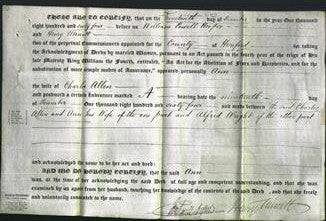 THESE ARE TO CERTIFY, that on the nineteenth day of December in the year One thousand
eight hundred and sixty four before us William Powell
and Henry
two of the perpetual Commissioners appointed for the County of Hereford for taking
the Acknowledgments of Deeds by married Women, pursuant to an Act passed in the fourth year of the reign of His
late Majesty King William the Fourth, entituled, "An Act for the Abolition of Fines and Recoveries, and for the
substitution of more simple modes of Assurance," appeared personally Ann
the wife of Charles Allen
and produced a certain Indenture marked A bearing date the nineteenth day
of December One thousand eight hundred and sixty four and made between the said Charles
Allen and Ann his Wife of the one part and Alfred Wright of the other part
and acknowledged the same to be her act and deed:
AND WE DO HEREBY CERTIFY, that the said Ann
was, at the time of her acknowledging the said Deed, of full age and competent understanding, and that she was
examined by us apart from her husband, touching her knowledge of the contents of the said Deed, and that she freely
and voluntarily consented to the same.